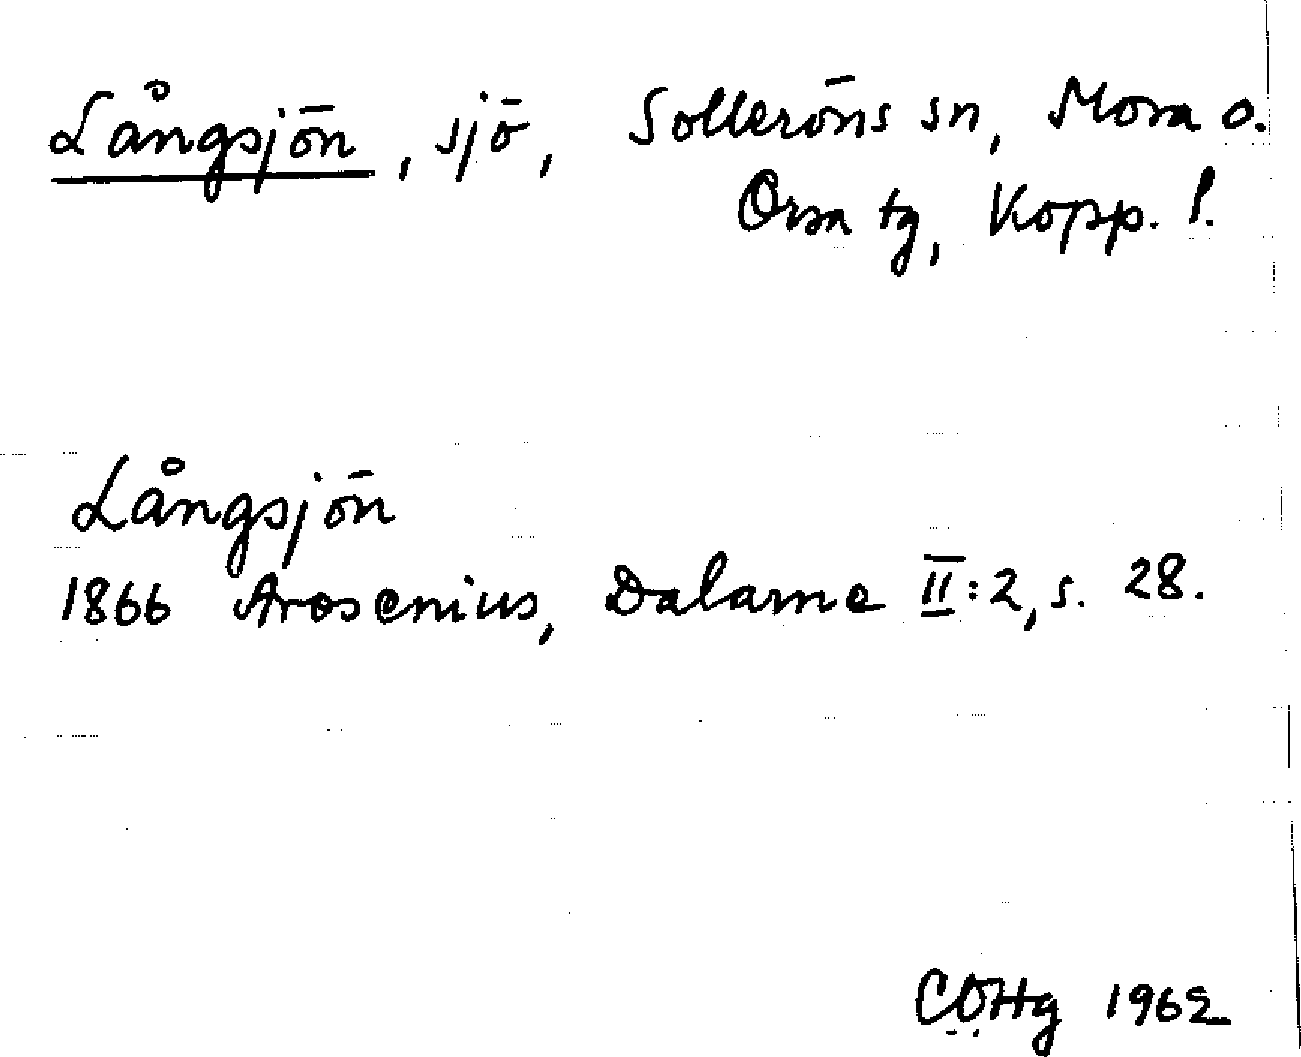 Långsjön, sjö, Solleröns sn, Mora o.
Orsa tg, Kopp. l.
Långsjön
1866 Arosenius, Dalarne II:2, s. 28.
CÖHg 1962